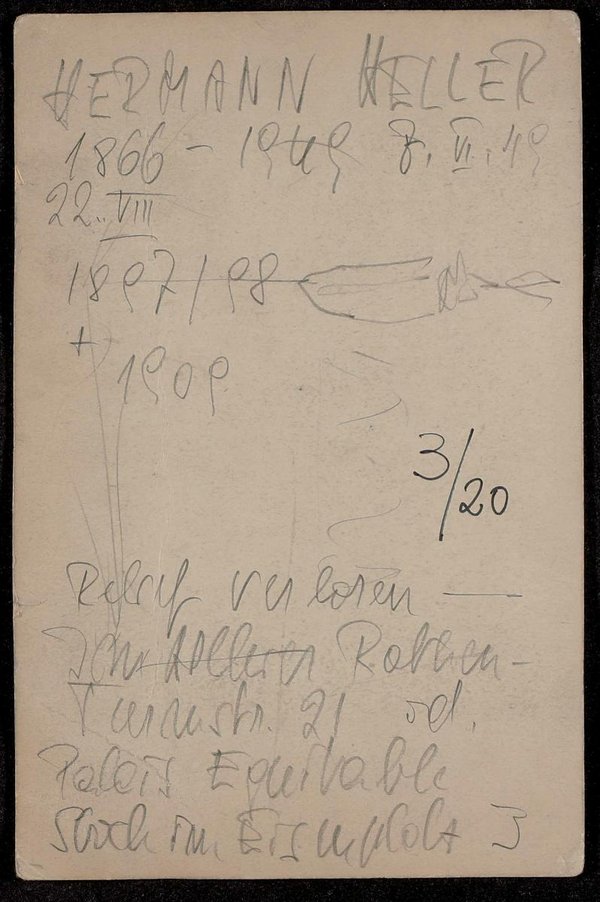 HERMANN HELLER
1866 - 1949 8. VI. 49
22. VIII
1897/98
+
1909
3/20
Relief verloren —
Rothen-
Turmstr. 21 od.
Palais Equitable
Stock im Eisenplatz 3